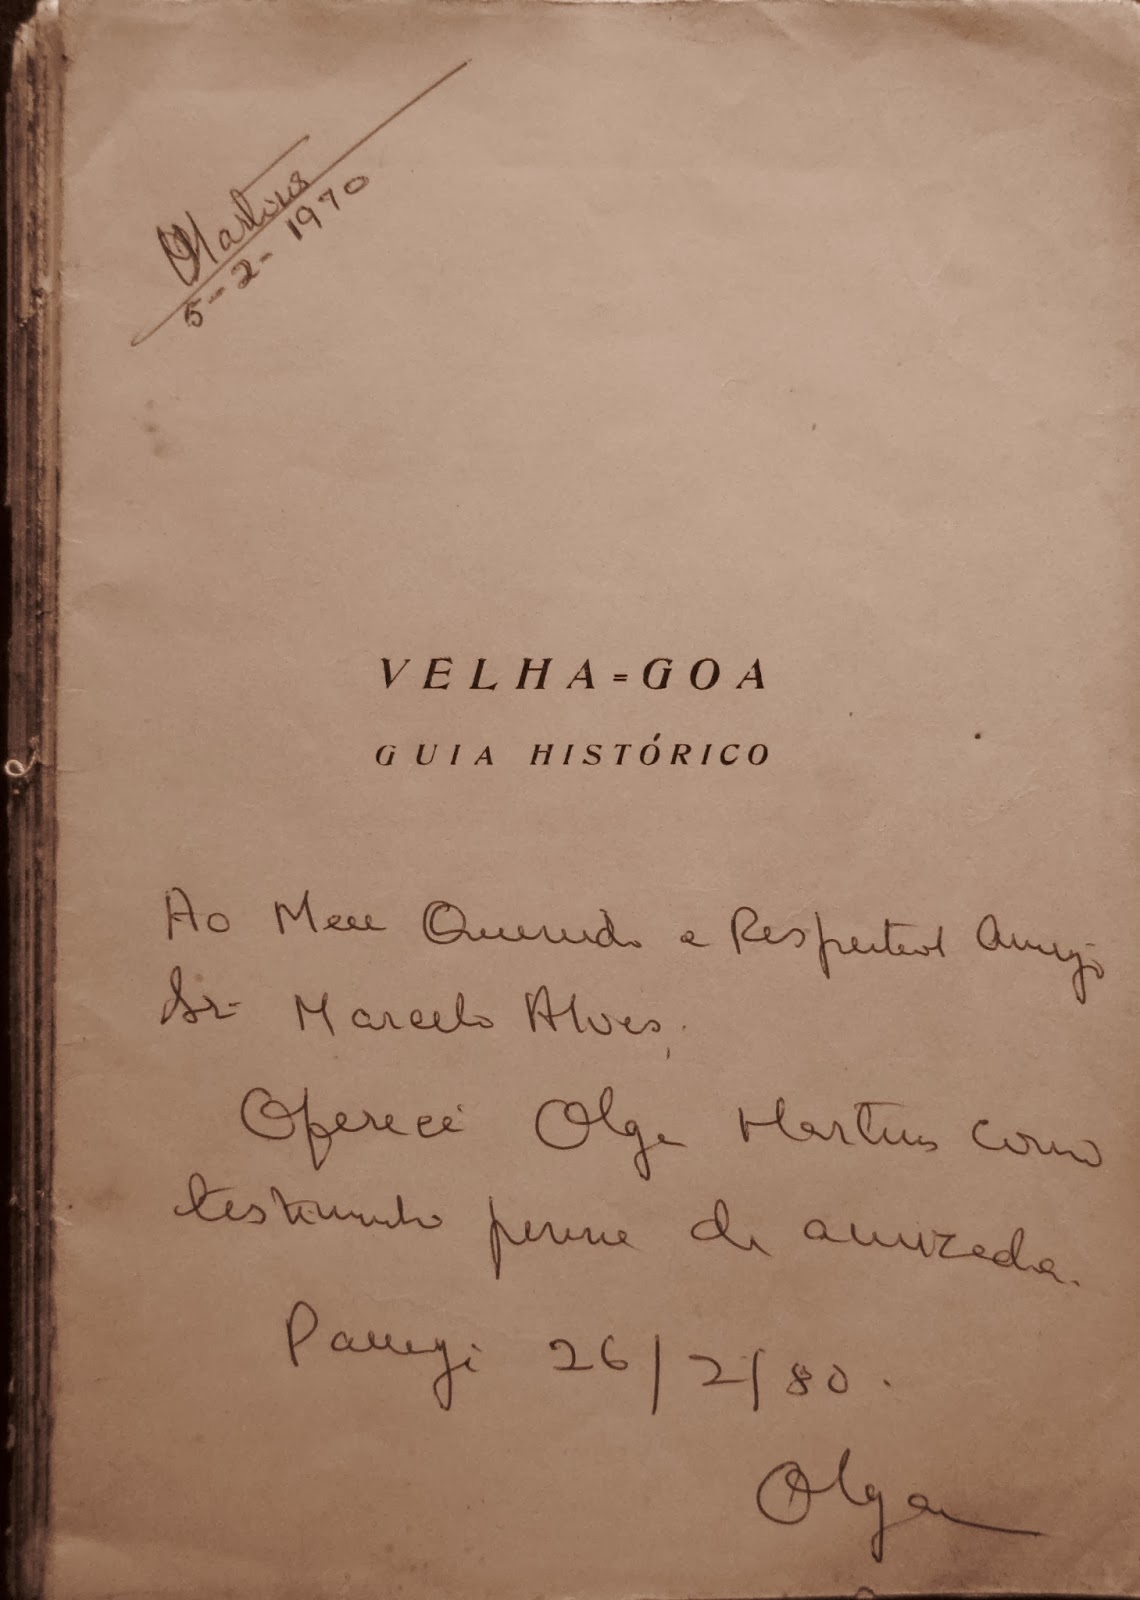 OMartins
5-2-1970
VELHA=GOA
GUIA HISTÓRICO
Ao Meu Querido e Respeitável Amigo
Sr. Marcelo Alves,
Oferece Olga Martins como
testemunho perene de amizade.
Panegi 26/2/80.
Olga